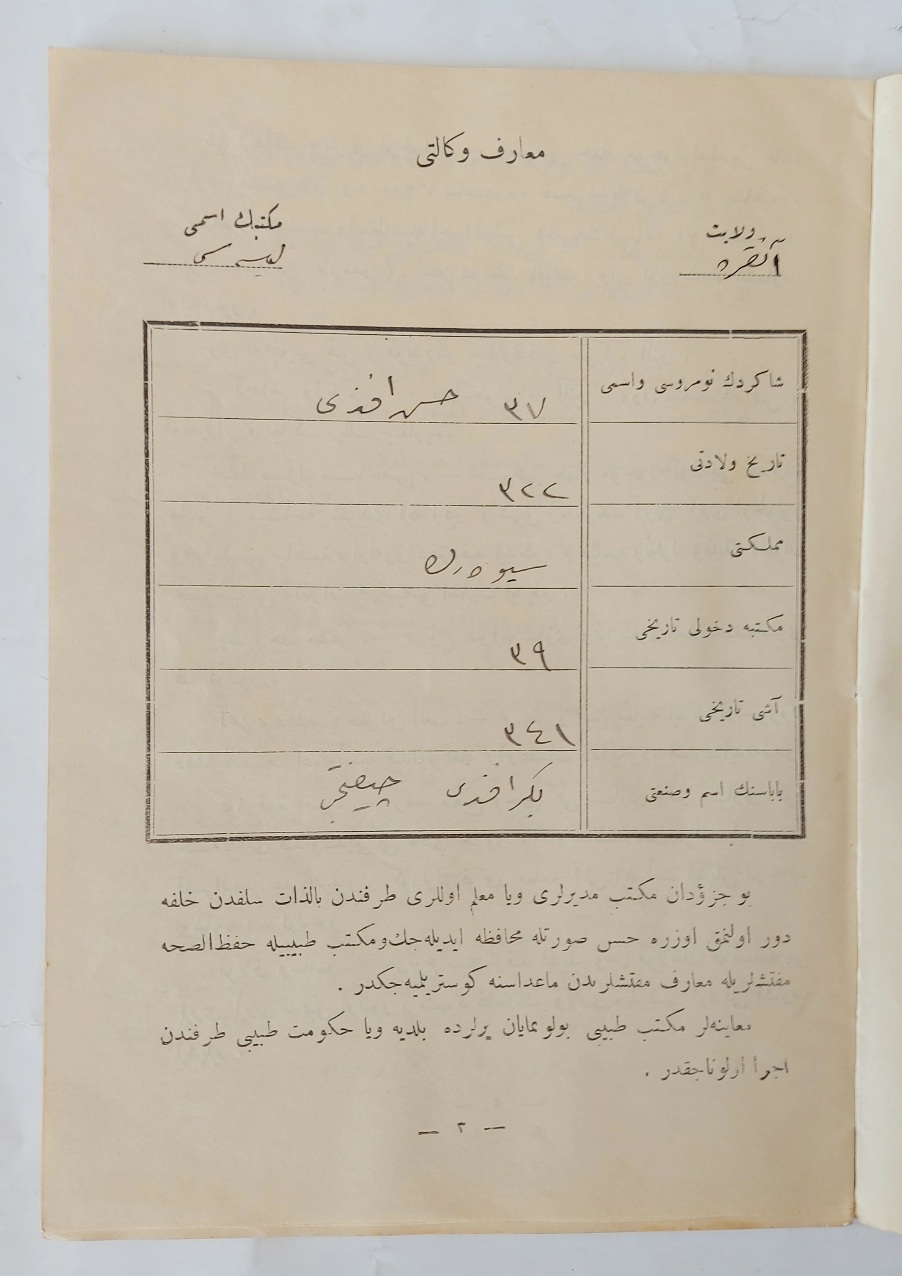 معارف وكالتی
ولایت
آنقره
مكتبك اسمی
لیسه سی
شاكردك نومروسی واسمی
٣٧ حسن افندی
تاریخ ولادتی
٣٢٢
مملكتی
سیوه رك
مكتبه دخولی تاریخی
٣٩
آشی تاریخی
٣٤١
باباسنك اسم وصنعتی
بكر افندی چیفتجی
بو جزؤدان مكتب مدیرلری ویا معلم اوللری طرفندن بالذات سلفدن خلفه
دور اولنمق اوزره حسن صورتله محافظه ایدیله‌جك ومكتب طبیبیله حفظ الصحه
مفتشلریله معارف مفتشلرندن ماعداسنه كوستریلمیه‌جكدر .
معاینه‌لر مكتب طبیبی بولونمایان یرلرده بلدیه ویا حكومت طبیبی طرفندن
اجرا اولوناجقدر .
— ٢ —